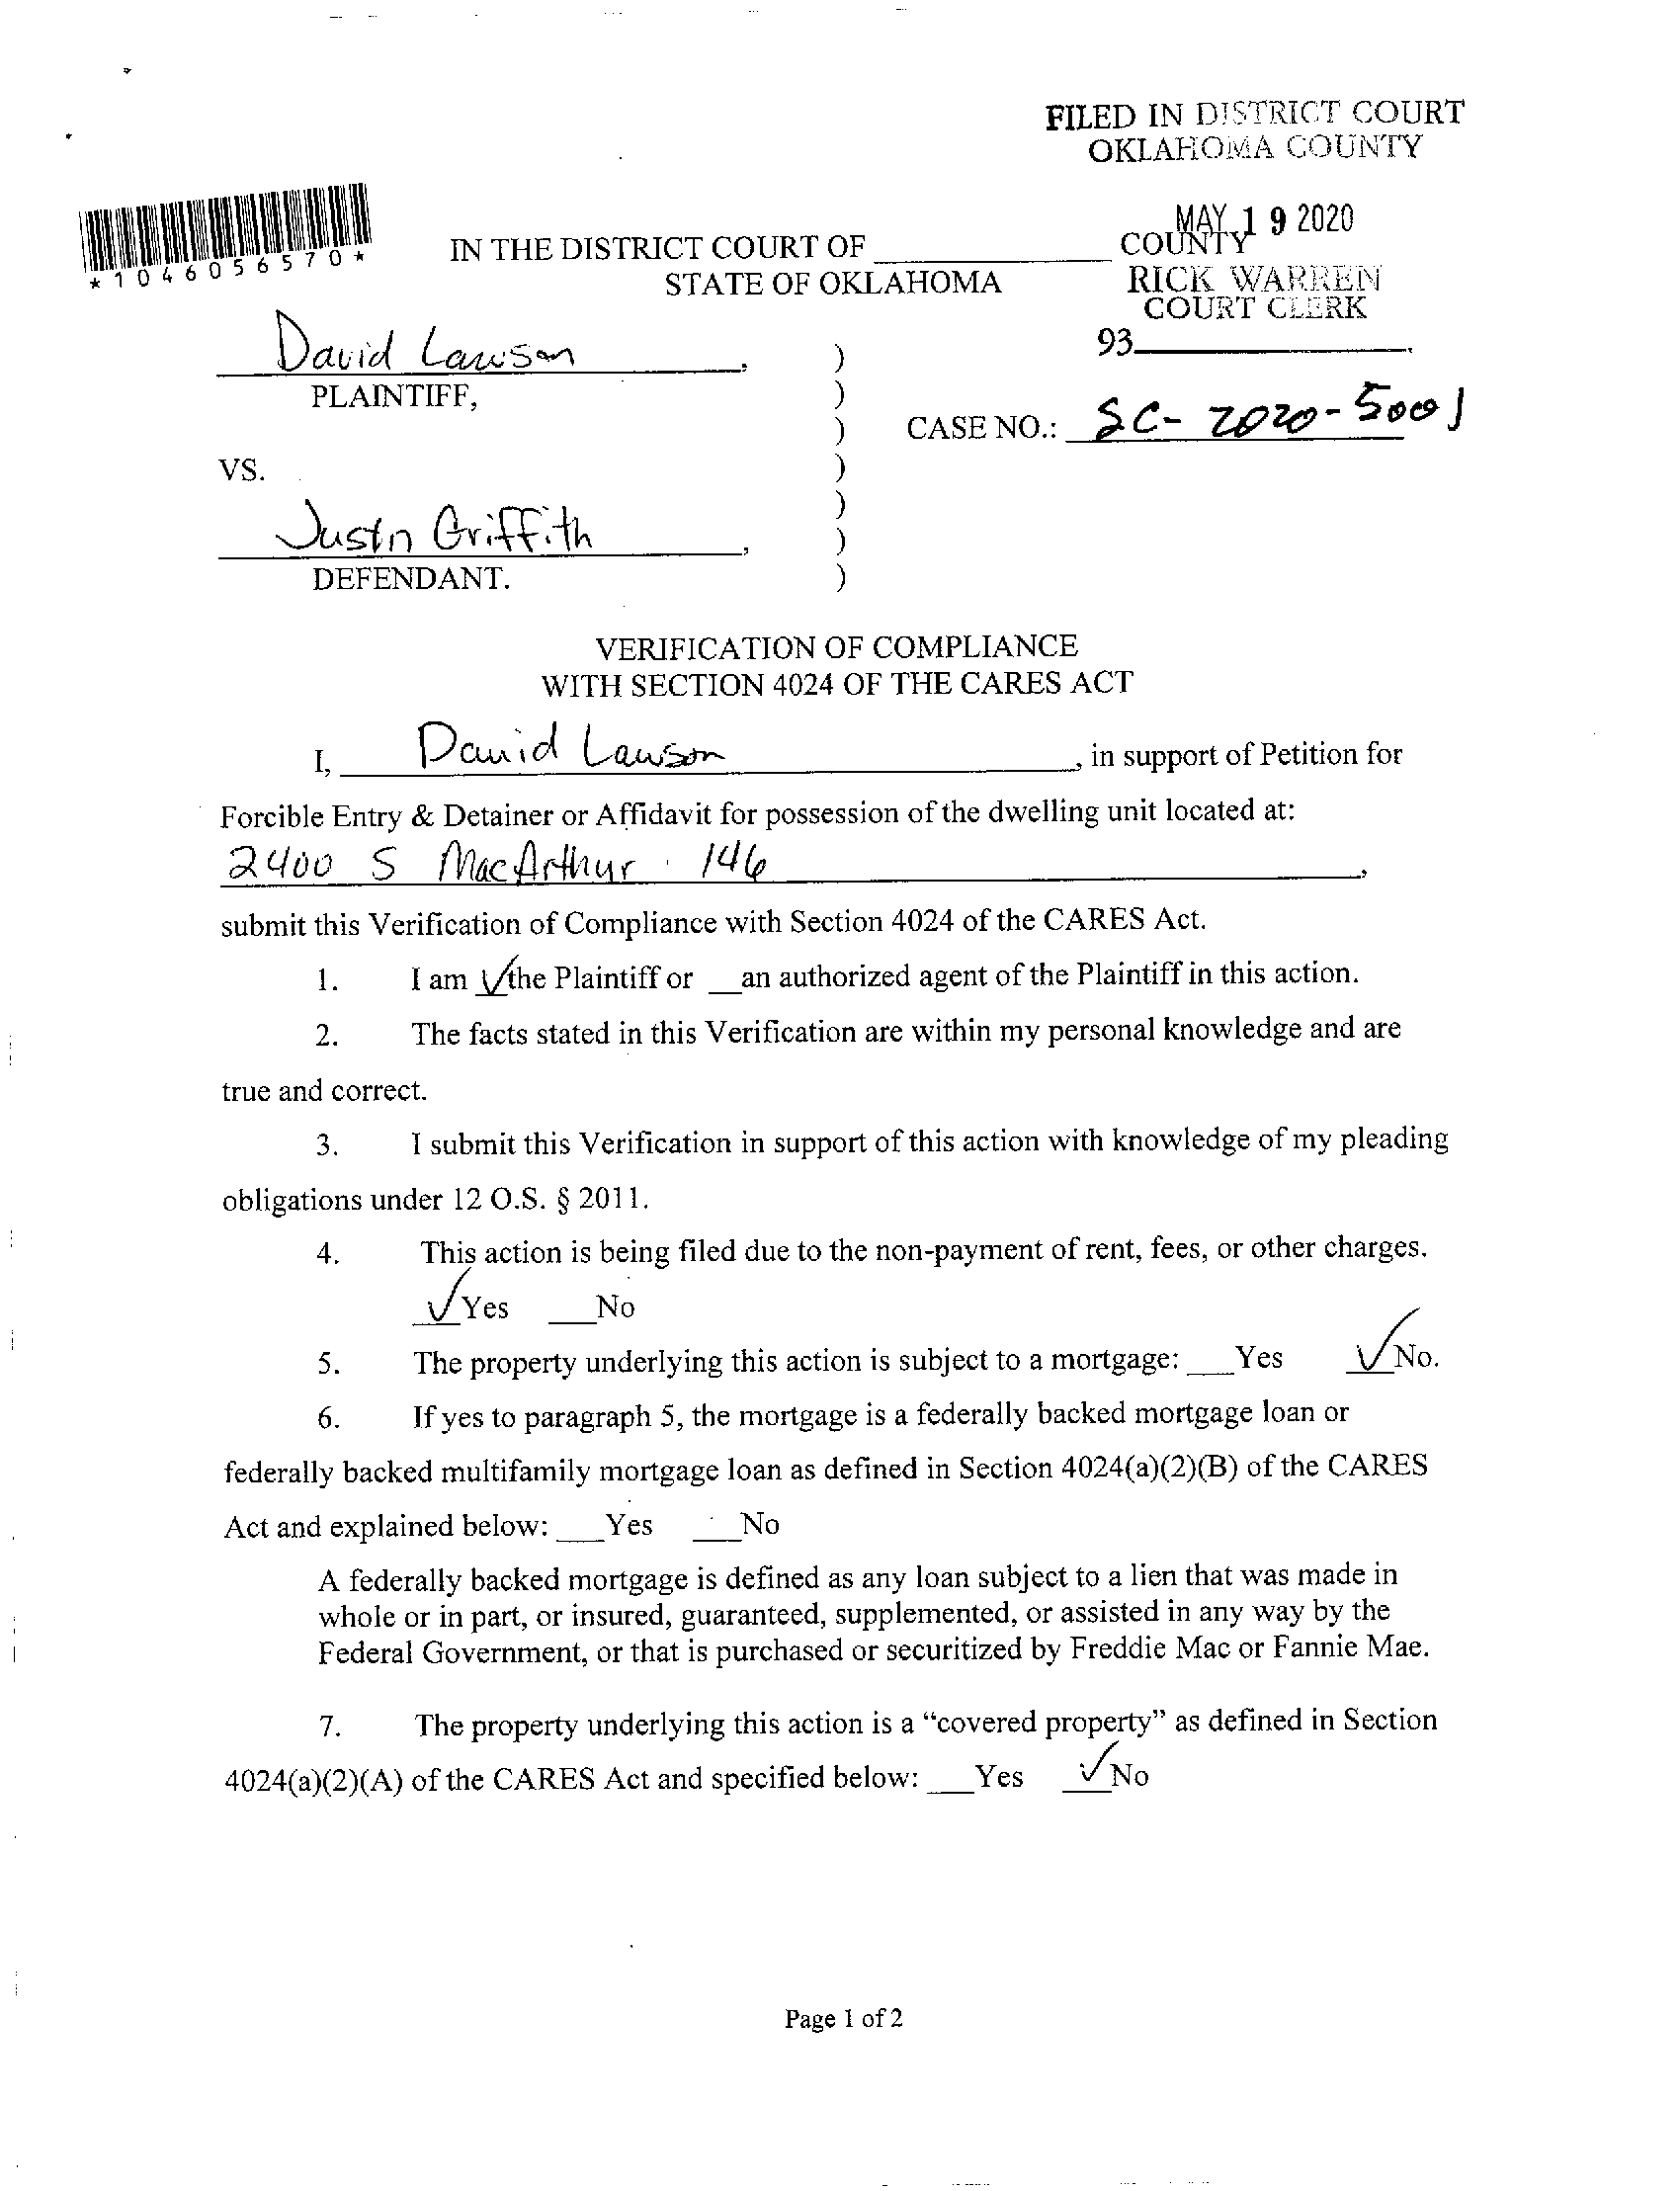 FILED IN DISTRICT COURT
OKLAHOMA COUNTY
MAY 19 2020
*1046056570*
IN THE DISTRICT COURT OF ____________ COUNTY
STATE OF OKLAHOMA
RICK WARREN
COURT CLERK
93____________.
David Lawson,
PLAINTIFF,
CASE NO.: SC-2020-5001
VS.
Justin Griffith,
DEFENDANT.
)
)
)
)
)
)
)
VERIFICATION OF COMPLIANCE
WITH SECTION 4024 OF THE CARES ACT
I, David Lawson, in support of Petition for
Forcible Entry & Detainer or Affidavit for possession of the dwelling unit located at:
2400 S MacArthur 146,
submit this Verification of Compliance with Section 4024 of the CARES Act.
1. I am ✓the Plaintiff or __an authorized agent of the Plaintiff in this action.
2. The facts stated in this Verification are within my personal knowledge and are
true and correct.
3. I submit this Verification in support of this action with knowledge of my pleading
obligations under 12 O.S. § 2011.
4. This action is being filed due to the non-payment of rent, fees, or other charges.
✓Yes ___No
5. The property underlying this action is subject to a mortgage: ___Yes ✓No.
6. If yes to paragraph 5, the mortgage is a federally backed mortgage loan or
federally backed multifamily mortgage loan as defined in Section 4024(a)(2)(B) of the CARES
Act and explained below: ___Yes ___No
A federally backed mortgage is defined as any loan subject to a lien that was made in
whole or in part, or insured, guaranteed, supplemented, or assisted in any way by the
Federal Government, or that is purchased or securitized by Freddie Mac or Fannie Mae.
7. The property underlying this action is a “covered property” as defined in Section
4024(a)(2)(A) of the CARES Act and specified below: ___Yes ✓No
Page 1 of 2